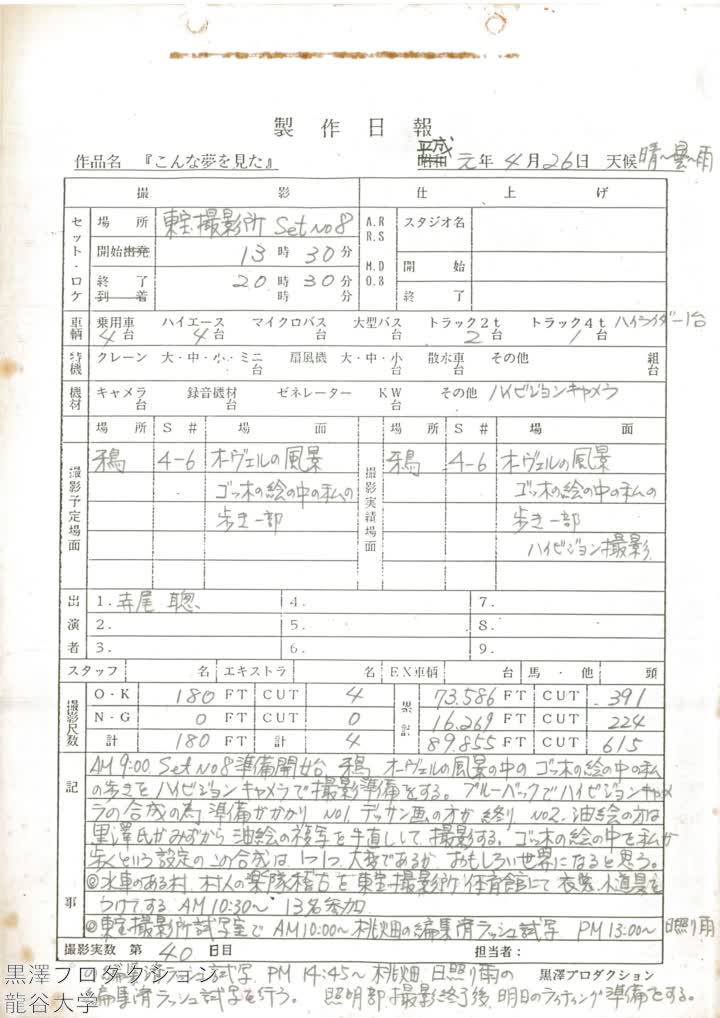 製作日報
作品名 『こんな夢を見た』 昭和 平成 元年 4月 26日 天候 晴〜曇〜雨
撮影 仕上げ
セット・ロケ 場所 東宝撮影所 Set No8 A.R R.S スタジオ名
開始出発 13時 30分 M.D O.B 開始
終了 20時 30分 終了
到着 時 分
車輌 乗用車 4台 ハイエース 4台 マイクロバス 台 大型バス 台 トラック2t 2台 トラック4t 1台 ハイライダー1台
特機 クレーン 大・中・小・ミニ 台 扇風機 大・中・小 台 散水車 台 その他 組 台
機材 キャメラ 台 録音機材 台 ゼネレーター KW 台 その他 ハイビジョンキャメラ
場所 S# 場面 場所 S# 場面
撮影予定場面 鴉 4-6 オーヴェルの風景 撮影実績場面 鴉 4-6 オーヴェルの風景
ゴッホの絵の中の私の ゴッホの絵の中の私の
歩き一部 歩き一部
ハイビジョン撮影
出演者 1. 寺尾 聰 4. 7.
2. 5. 8.
3. 6. 9.
スタッフ 名 エキストラ 名 EX車輌 台 馬・他 頭
撮影尺数 O・K 180 FT CUT 4 累計 73.586 FT CUT 391
N・G 0 FT CUT 0 16.269 FT CUT 224
計 180 FT 計 4 89.855 FT CUT 615
記事 AM9:00 Set No8 準備開始 鴉 オーヴェルの風景の中の ゴッホの絵の中の私
の歩きをハイビジョンキャメラで撮影準備をする。ブルーバックでハイビジョンキャメ
ラの合成の為準備がかかり No1. デッサン画の方が終り No2. 油絵の方は
黒澤氏がみずから油絵の複写を手直しして、撮影する。ゴッホの絵の中を私が
歩くという設定のこの合成は1つ1つ大変であるが おもしろい世界になると思う。
◎水車のある村、村人の楽隊稽古を東宝撮影所体育館にて衣裳、小道具を
つけてする AM10:30〜 13名参加
◎東宝撮影所試写室で AM10:00〜桃畑の編集済ラッシュ試写 PM13:00〜日照り雨
撮影実数 第 40 日目 担当者：
の編集済ラッシュ試写 PM14:45〜桃畑 日照り雨の 黒澤プロダクション
編集済ラッシュ試写を行う。 照明部、撮影終了後、明日のライティング準備をする。
黒澤プロダクション
龍谷大学